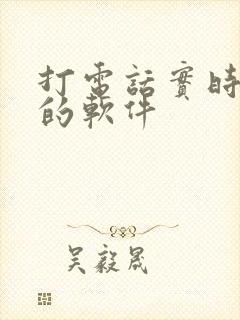 打電話實時
的軟件
吳毅晟